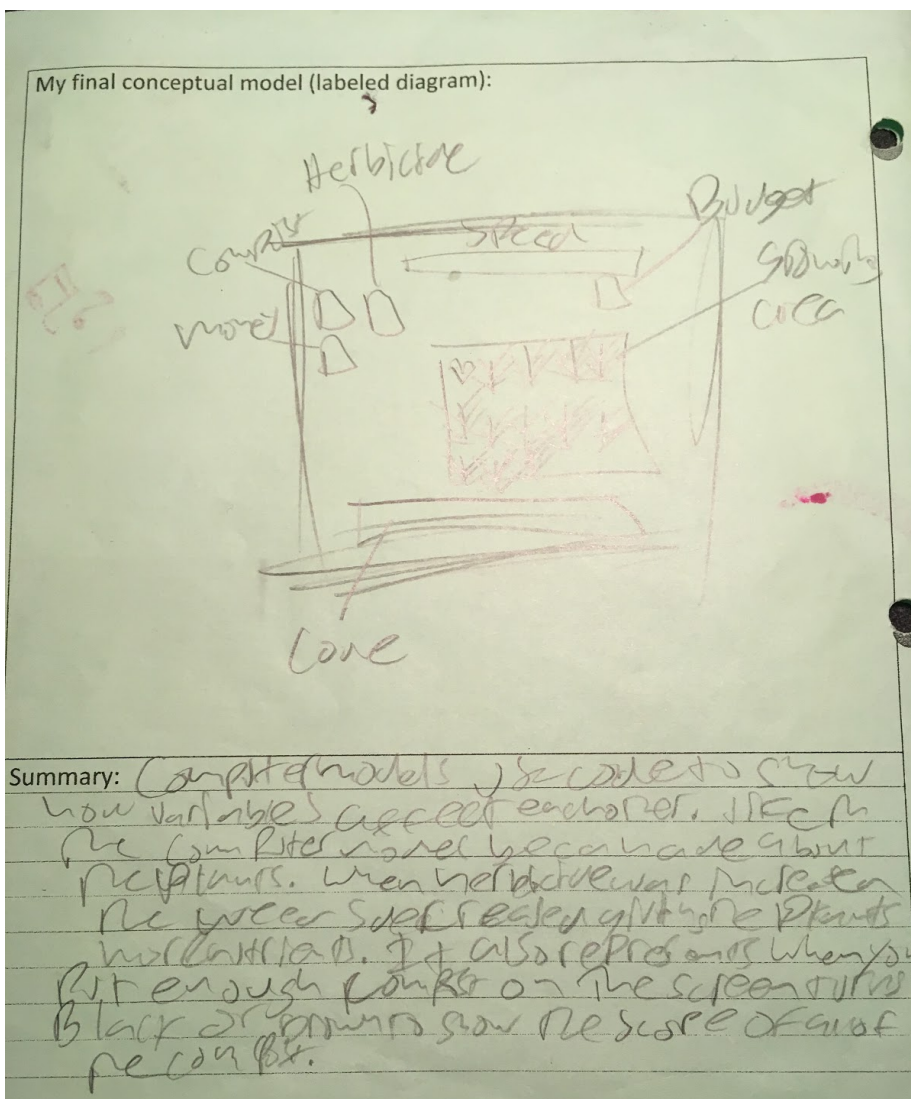 My final conceptual model (labeled diagram):
Herbicide
Budget
Speed
model
area
Code
Summary: Computer models use code to show
how variables affect each other. like in
the computer model we can made about
the plants. when herbicide was increased
the weeds decreased giving the plants
more nutrients. It also represents when you
Put enough compost on the screen turns
Black or brown to show the scope of all of
the compost.